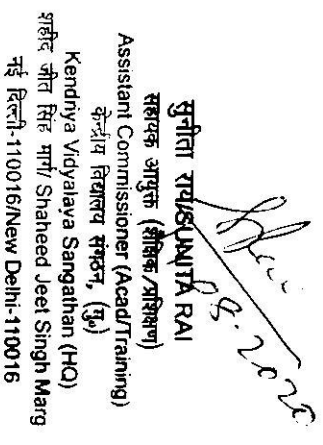 08.2020
सुनीता राय/SUNITA RAI
सहायक आयुक्त (शैक्षिक/प्रशिक्षण)
Assistant Commissioner (Acad/Training)
केन्द्रीय विद्यालय संगठन, (मु॰)
Kendriya Vidyalaya Sangathan (HQ)
शहीद जीत सिंह मार्ग/ Shaheed Jeet Singh Marg
नई दिल्ली-110016/New Delhi-110016